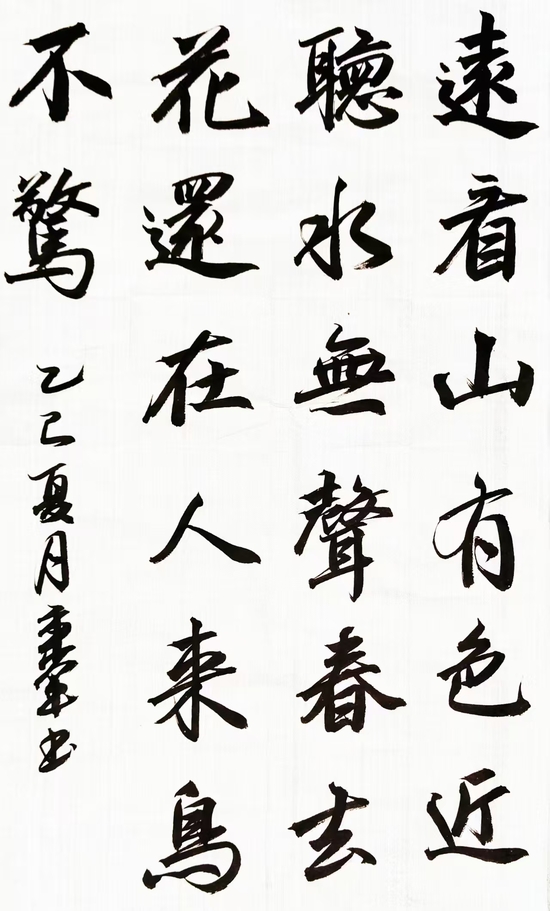 遠看山有色近
聽水無聲春去
花還在人来鳥
不驚
乙巳夏月秉軍书